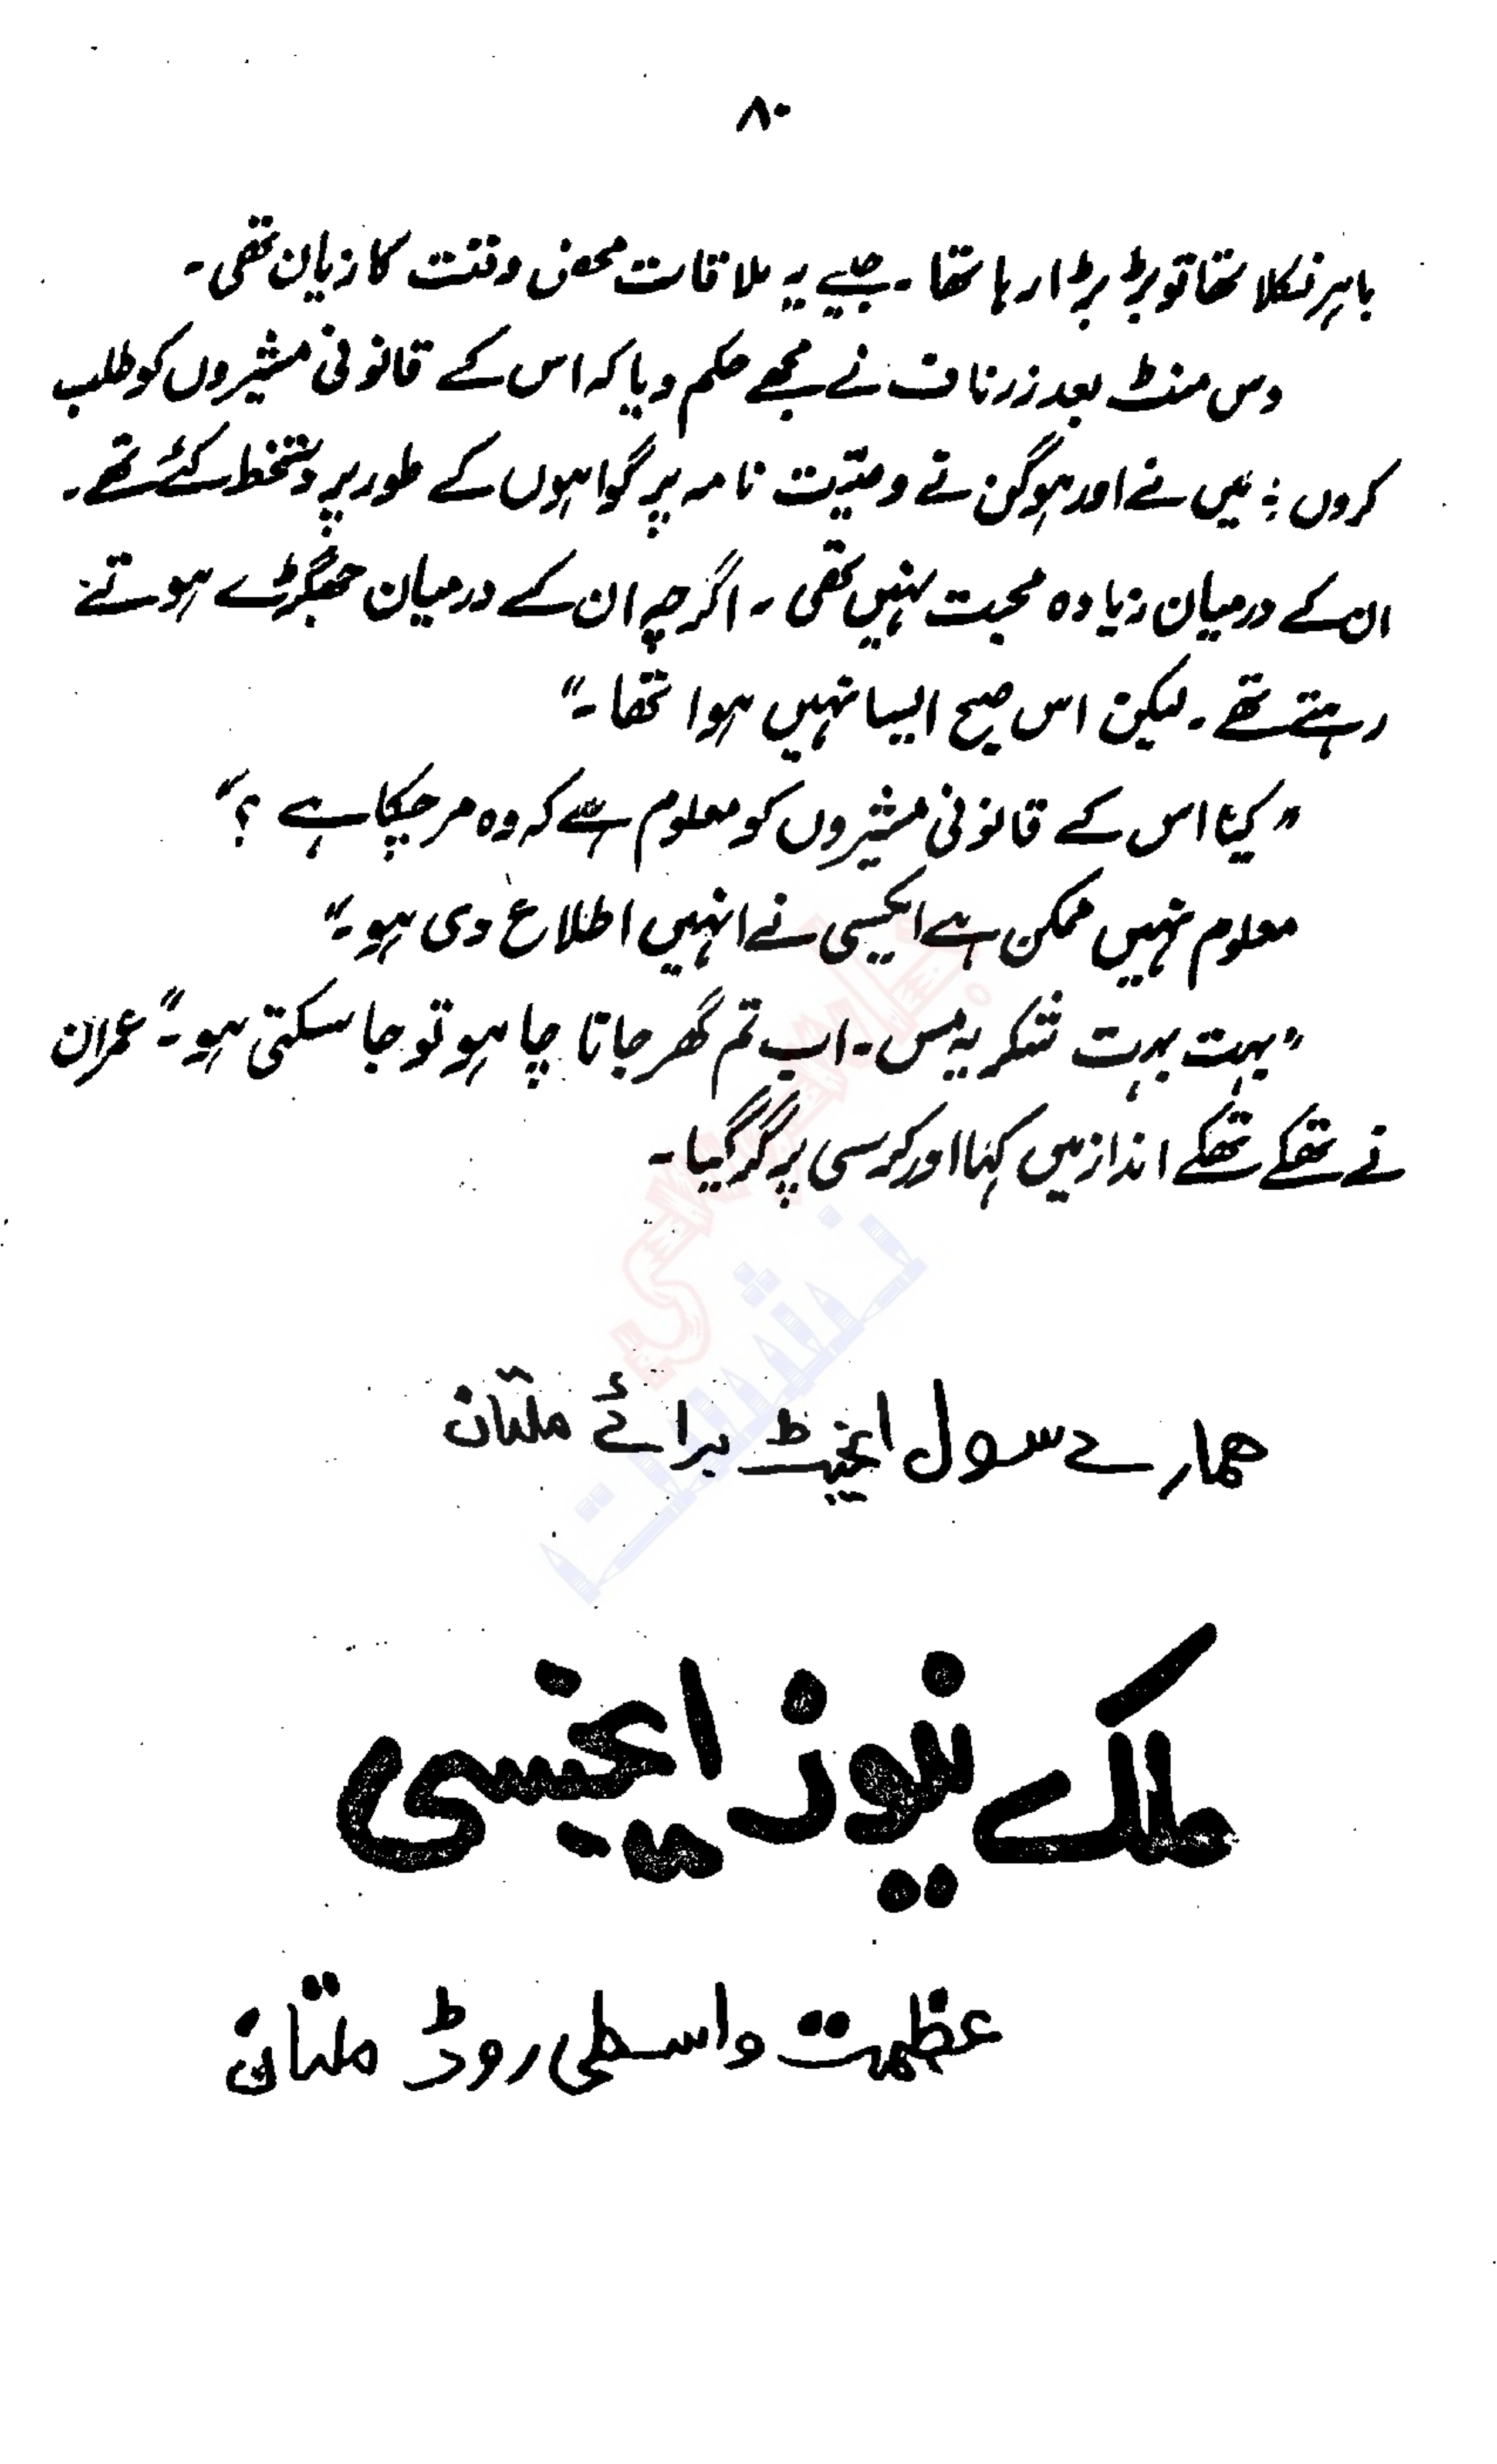 ۸۰
باہر نکلا تھا تو بڑ بڑا رہا تھا۔ جیسے یہ ملاقات محض وقت کا زیان تھی۔
دس منٹ بعد زرناف نے مجھے حکم دیا کہ اس کے قانونی مشیروں کو طلب
کروں؛ میں نے اور ہوگن نے وصیّت نامہ پر گواہوں کے طور پر دستخط کئے تھے۔
ان کے درمیان زیادہ محبت نہیں تھی۔ اگرچہ ان کے درمیان جھگڑے ہوتے
رہتے تھے۔ لیکن اس صبح ایسا نہیں ہوا تھا۔"
"کیا اس کے قانونی مشیروں کو معلوم ہے کہ وہ مر چکا ہے؟"
معلوم نہیں ممکن ہے ایکسی نے انہیں اطلاع دی ہو۔"
"بہت بہت شکریہ مس۔ اب تم گھر جانا چاہو تو جا سکتی ہو۔" عمران
نے تھکے تھکے انداز میں کہا اور کرسی پر گر گیا۔
ہمارے سول ایجنٹ برائے ملتان
ملک نیوز ایجنسی
عظمت واسطی روڈ ملتان